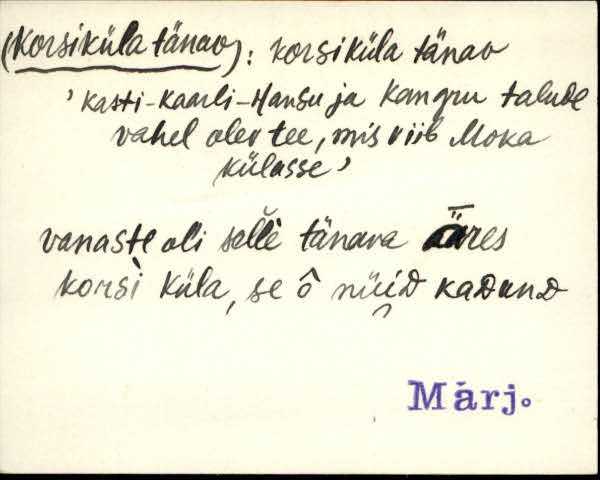 (Korsiküla tänav): korsiküla tänav
'Kasti-Kaarli-Hansu ja Kangru talude
vahel olev tee, mis viib Moka
külasse'
vanaste oli selle tänava ääres
korsi küla, se ô nüid kadund
Märj.